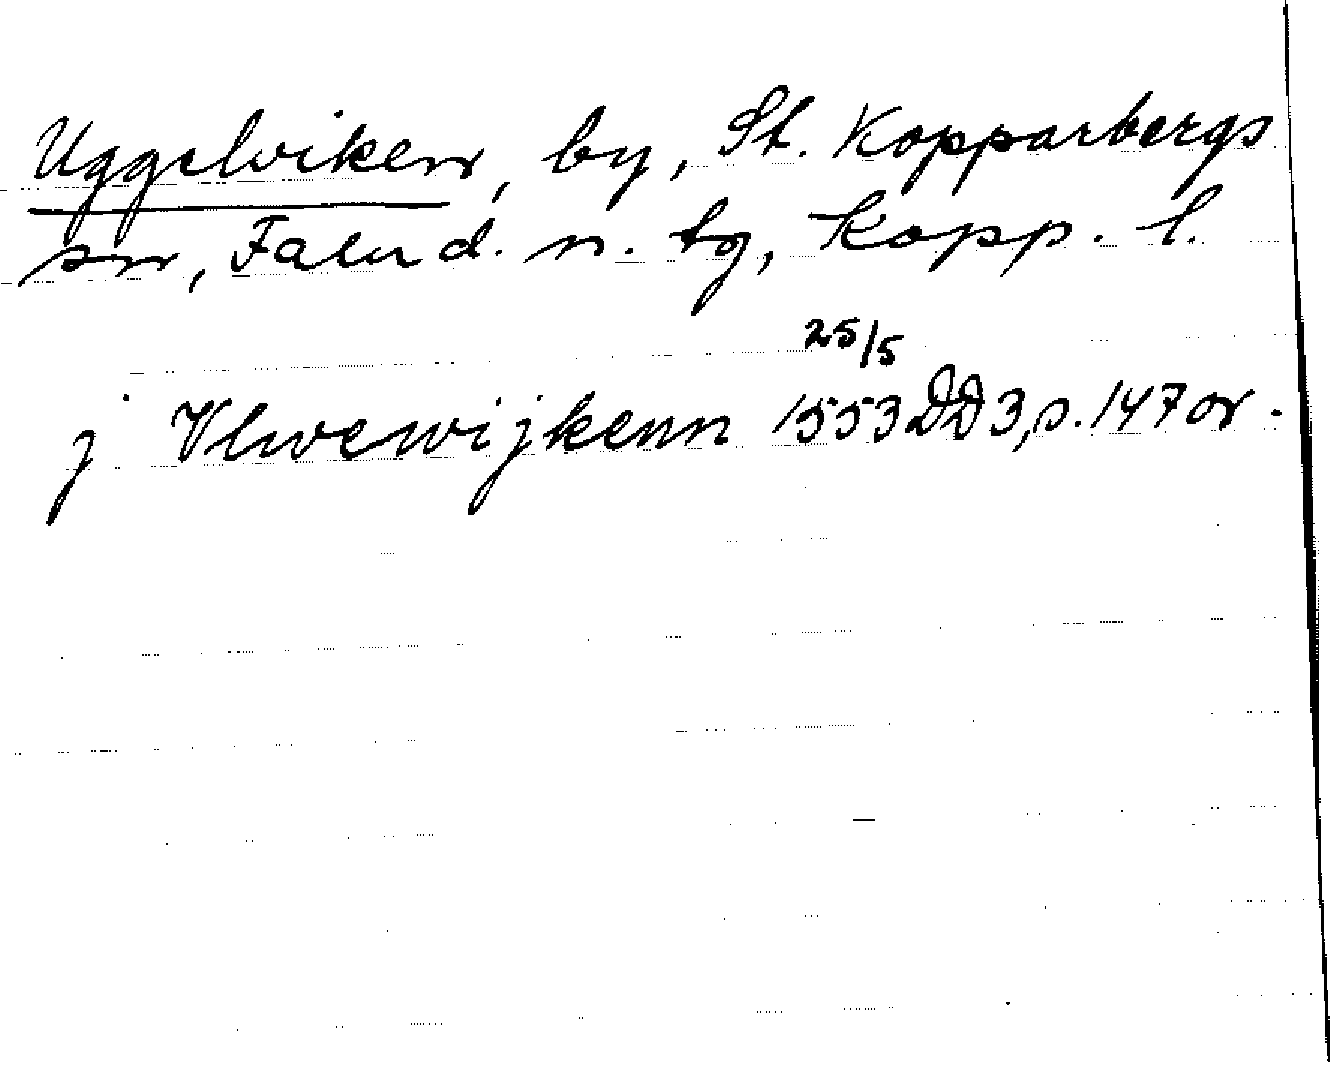 Uggelviken, by, St. Kopparbergs
sn, Falu d. n. tg, Kopp. l.
j Vlwewijkenn 25/5 1553 DD 3, s. 147 or.